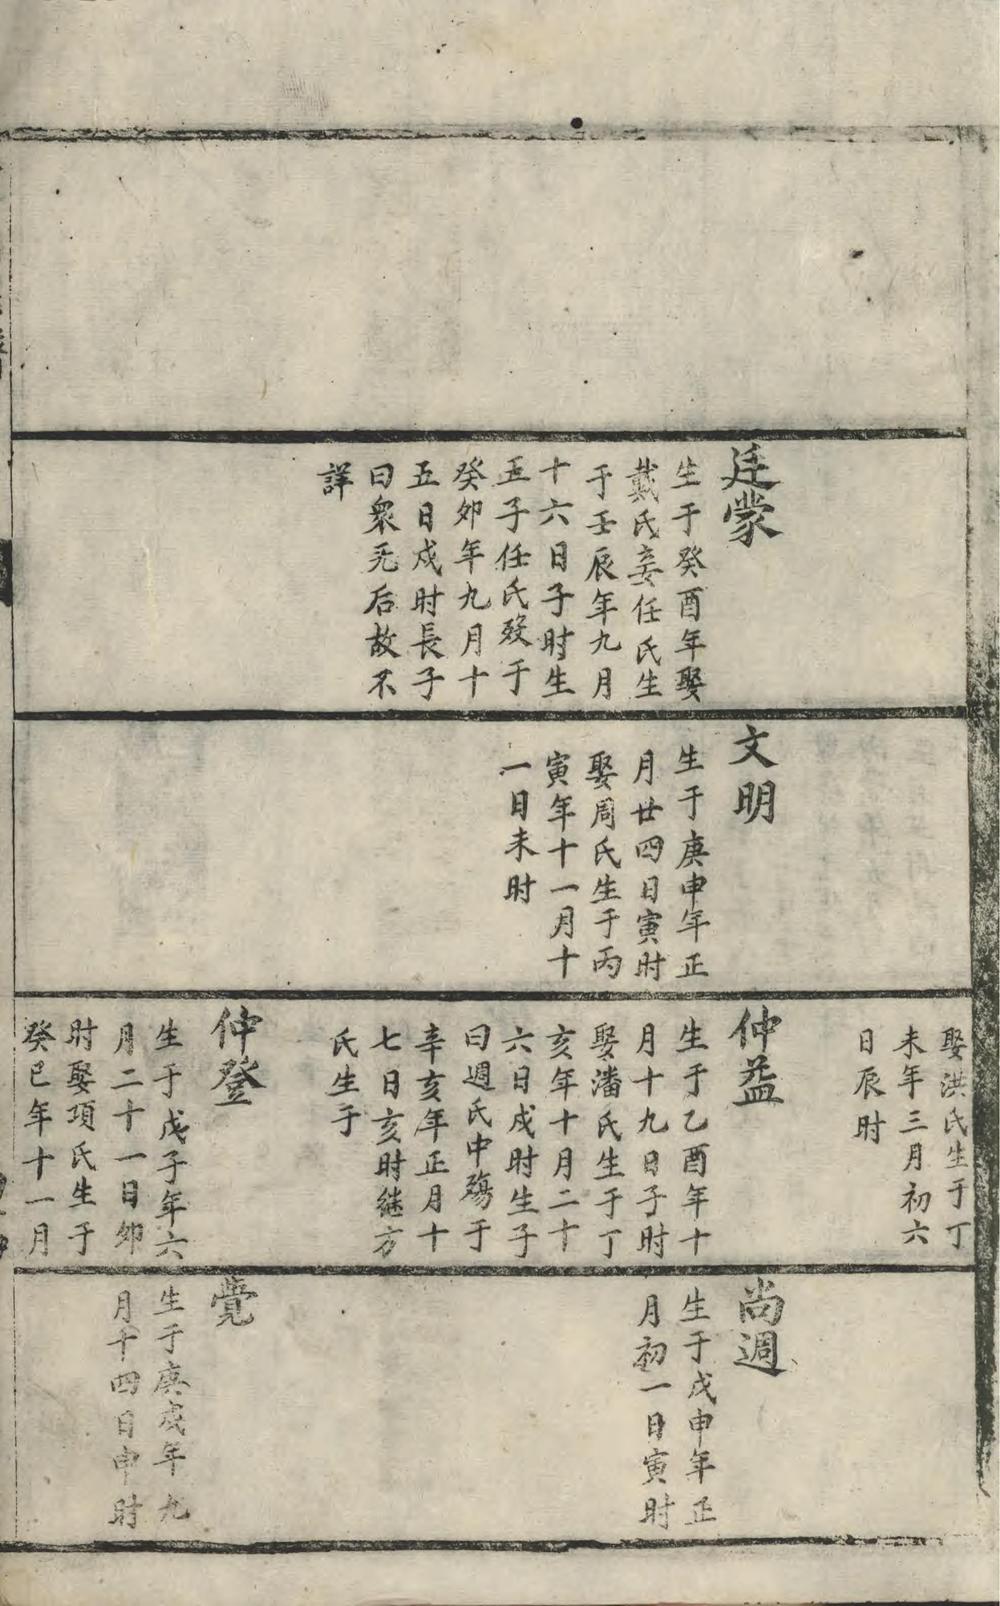 廷蒙
生于癸酉年娶
戴氏妾任氏生
于壬辰年九月
十六日子时生
五子任氏殁于
癸夘年九月十
五日戍时長子
曰衆无后故不
詳
文明
生于庚申年正
月廿四日寅时
娶周氏生于丙
寅年十一月十
一日未时
娶洪氏生于丁
未年三月初六
日辰时
仲益
生于乙酉年十
月十九日子时
娶潘氏生于丁
亥年十月二十
六日戍时生子
曰週氏中殤于
辛亥年正月十
七日亥时継方
氏生于
仲登
生于戊子年六
月二十一日夘
时娶項氏生于
癸巳年十一月
尚週
生于戊申年正
月初一日寅时
覺
生于庚戍年九
月十四日申时